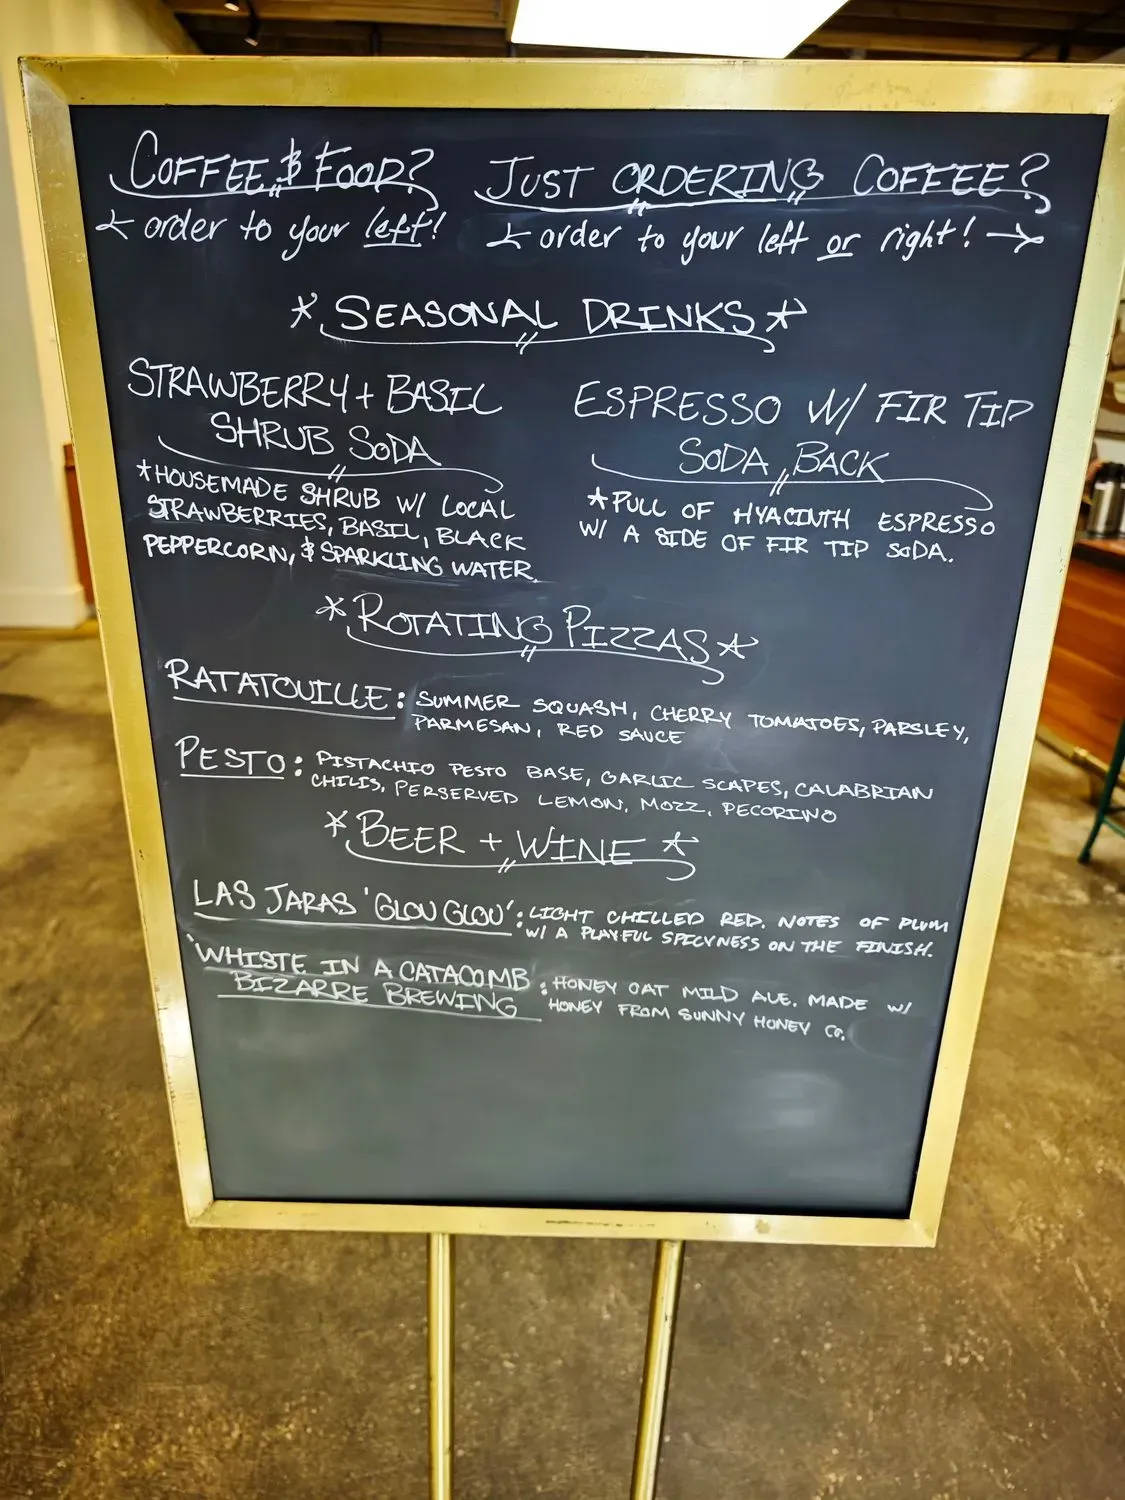 COFFEE & FOOD?
← order to your left!
JUST ORDERING COFFEE?
← order to your left or right! →
* SEASONAL DRINKS *
STRAWBERRY + BASIL
SHRUB SODA
* HOUSEMADE SHRUB W/ LOCAL
STRAWBERRIES, BASIL, BLACK
PEPPERCORN, & SPARKLING WATER.
ESPRESSO W/ FIR TIP
SODA BACK
* PULL OF HYACINTH ESPRESSO
W/ A SIDE OF FIR TIP SODA.
* ROTATING PIZZAS *
RATATOUILLE: SUMMER SQUASH, CHERRY TOMATOES, PARSLEY,
PARMESAN, RED SAUCE
PESTO: PISTACHIO PESTO BASE, GARLIC SCAPES, CALABRIAN
CHILIS, PERSERVED LEMON, MOZZ, PECORINO
* BEER + WINE *
LAS JARAS 'GLOU GLOU': LIGHT CHILLED RED. NOTES OF PLUM
W/ A PLAYFUL SPICYNESS ON THE FINISH.
'WHISTE IN A CATACOMB : HONEY OAT MILD ALE. MADE W/
BIZARRE BREWING HONEY FROM SUNNY HONEY CO.